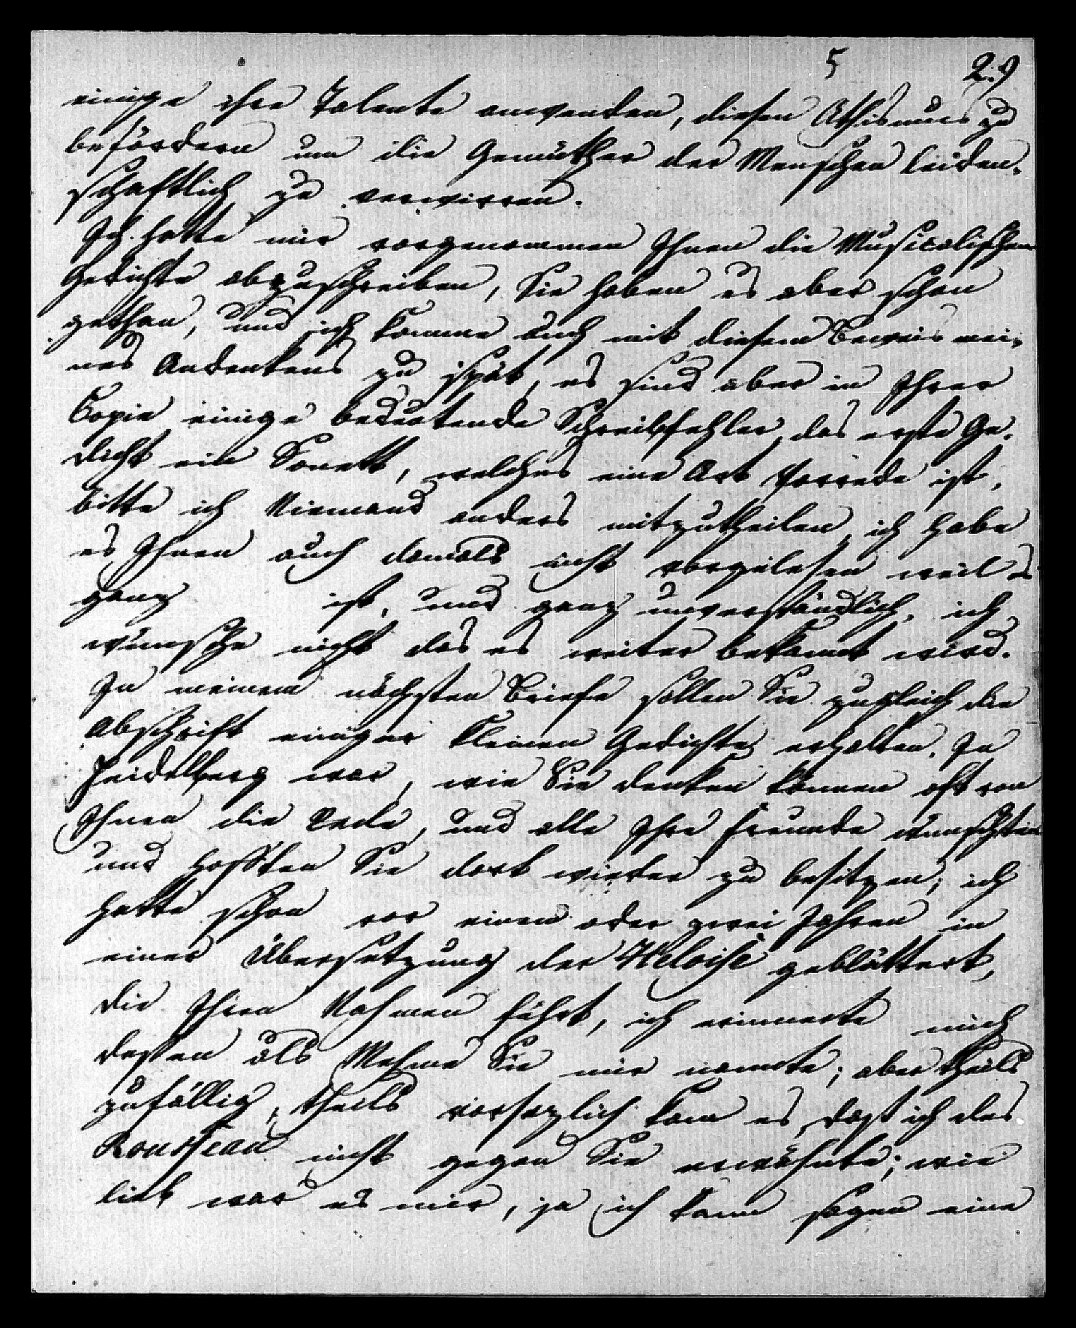 5 29
einige ihre Talente anwenden, diesen Athismus zu
befördern um die Gemüther der Menschen leiden-
schaftlich zu verwirren.
Ich hatte mir vorgenommen Ihnen die Musicalischen
Gedichte abzuschreiben, Sie haben es aber schon
gethan, und ich komme auch mit diesem Beweis mei-
nes Andenkens zu spät, es sind aber in Ihrer
Copie einige bedeutende Schreibfehler, das erste Ge-
dicht ein Sonett, welches eine Art Vorrede ist,
bitte ich Niemand anders mitzutheilen, ich habe
es Ihnen auch damals nicht vorgelesen weil es
ganz ist, und ganz unverständlich, ich
wünsche nicht das es weiter bekannt wird.
In meinem nächsten Briefe sollen Sie zugleich die
Abschrift einiger kleinen Gedichte erhalten. In
Heidelberg war, wie Sie denken können oft von
Ihnen die Rede, und alle Ihre Freunde wünschten
und hofften Sie dort wieder zu besitzen; ich
hatte schon vor einem oder zwei Jahren in
einer Übersetzung der Heloise geblättert,
die Ihren Nahmen führt, ich erinnerte mich
dessen als Sie mir nannte; aber theils
zufällig, theils vorsezlich kam es, daß ich des
Rousseau nicht gegen Sie erwähnte; wie
lieb war es mir, ja ich kann sagen eine